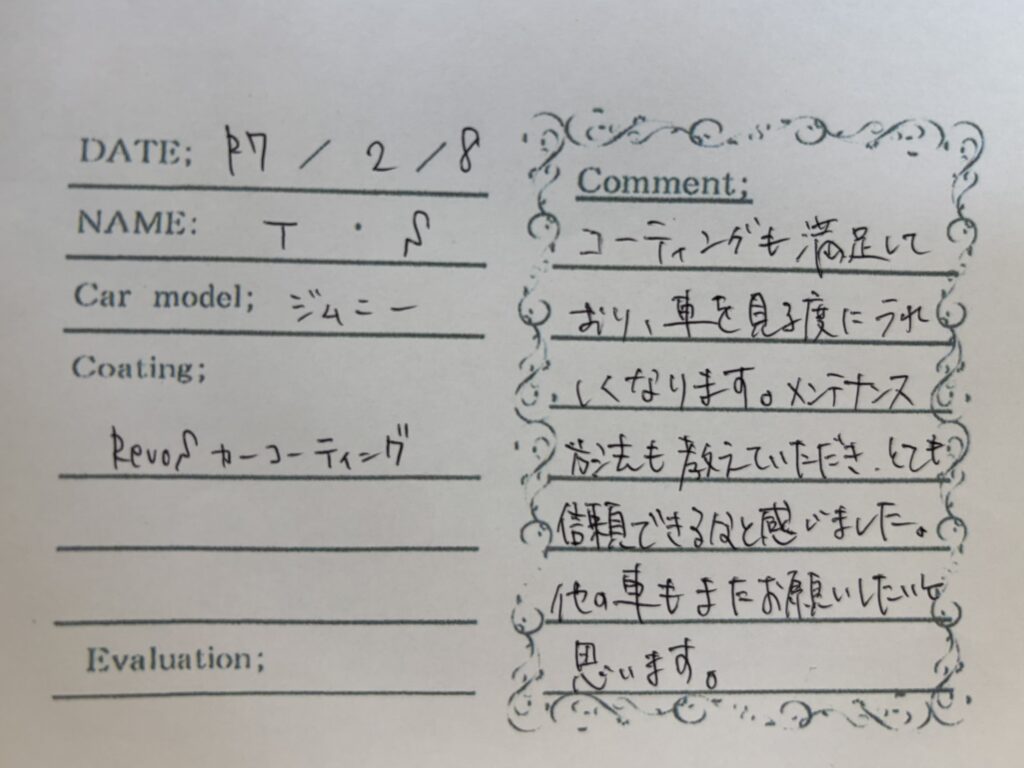 DATE; R7 / 2 / 8
NAME: T ・ S
Car model; ジムニー
Coating;
RevoS カーコーティング
Evaluation;
Comment;
コーティングも満足して
おり、車を見る度にうれ
しくなります。メンテナンス
方法も教えていただき、とても
信頼できるなと感じました。
他の車もまたお願いしたいと
思います。